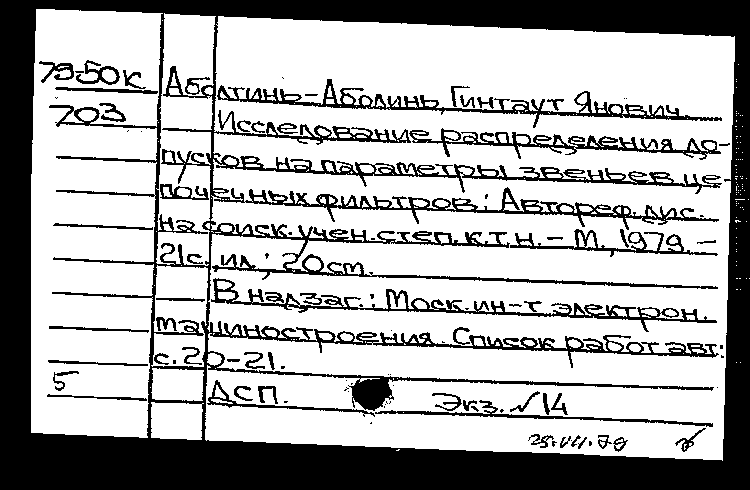 79-50к Аболтинь-Аболинь, Гинтаут Янович.
703 Исследование распределения до-
пусков на параметры звеньев це-
почечных фильтров: Автореф. дис.
на соиск. учен. степ. к.т.н. - М., 1979. -
21с., ил.; 20 cm.
В надзаг.: Моск. ин-т электрон.
машиностроения. Список работ авт.:
с. 20-21.
5 ДСП. Экз. №14